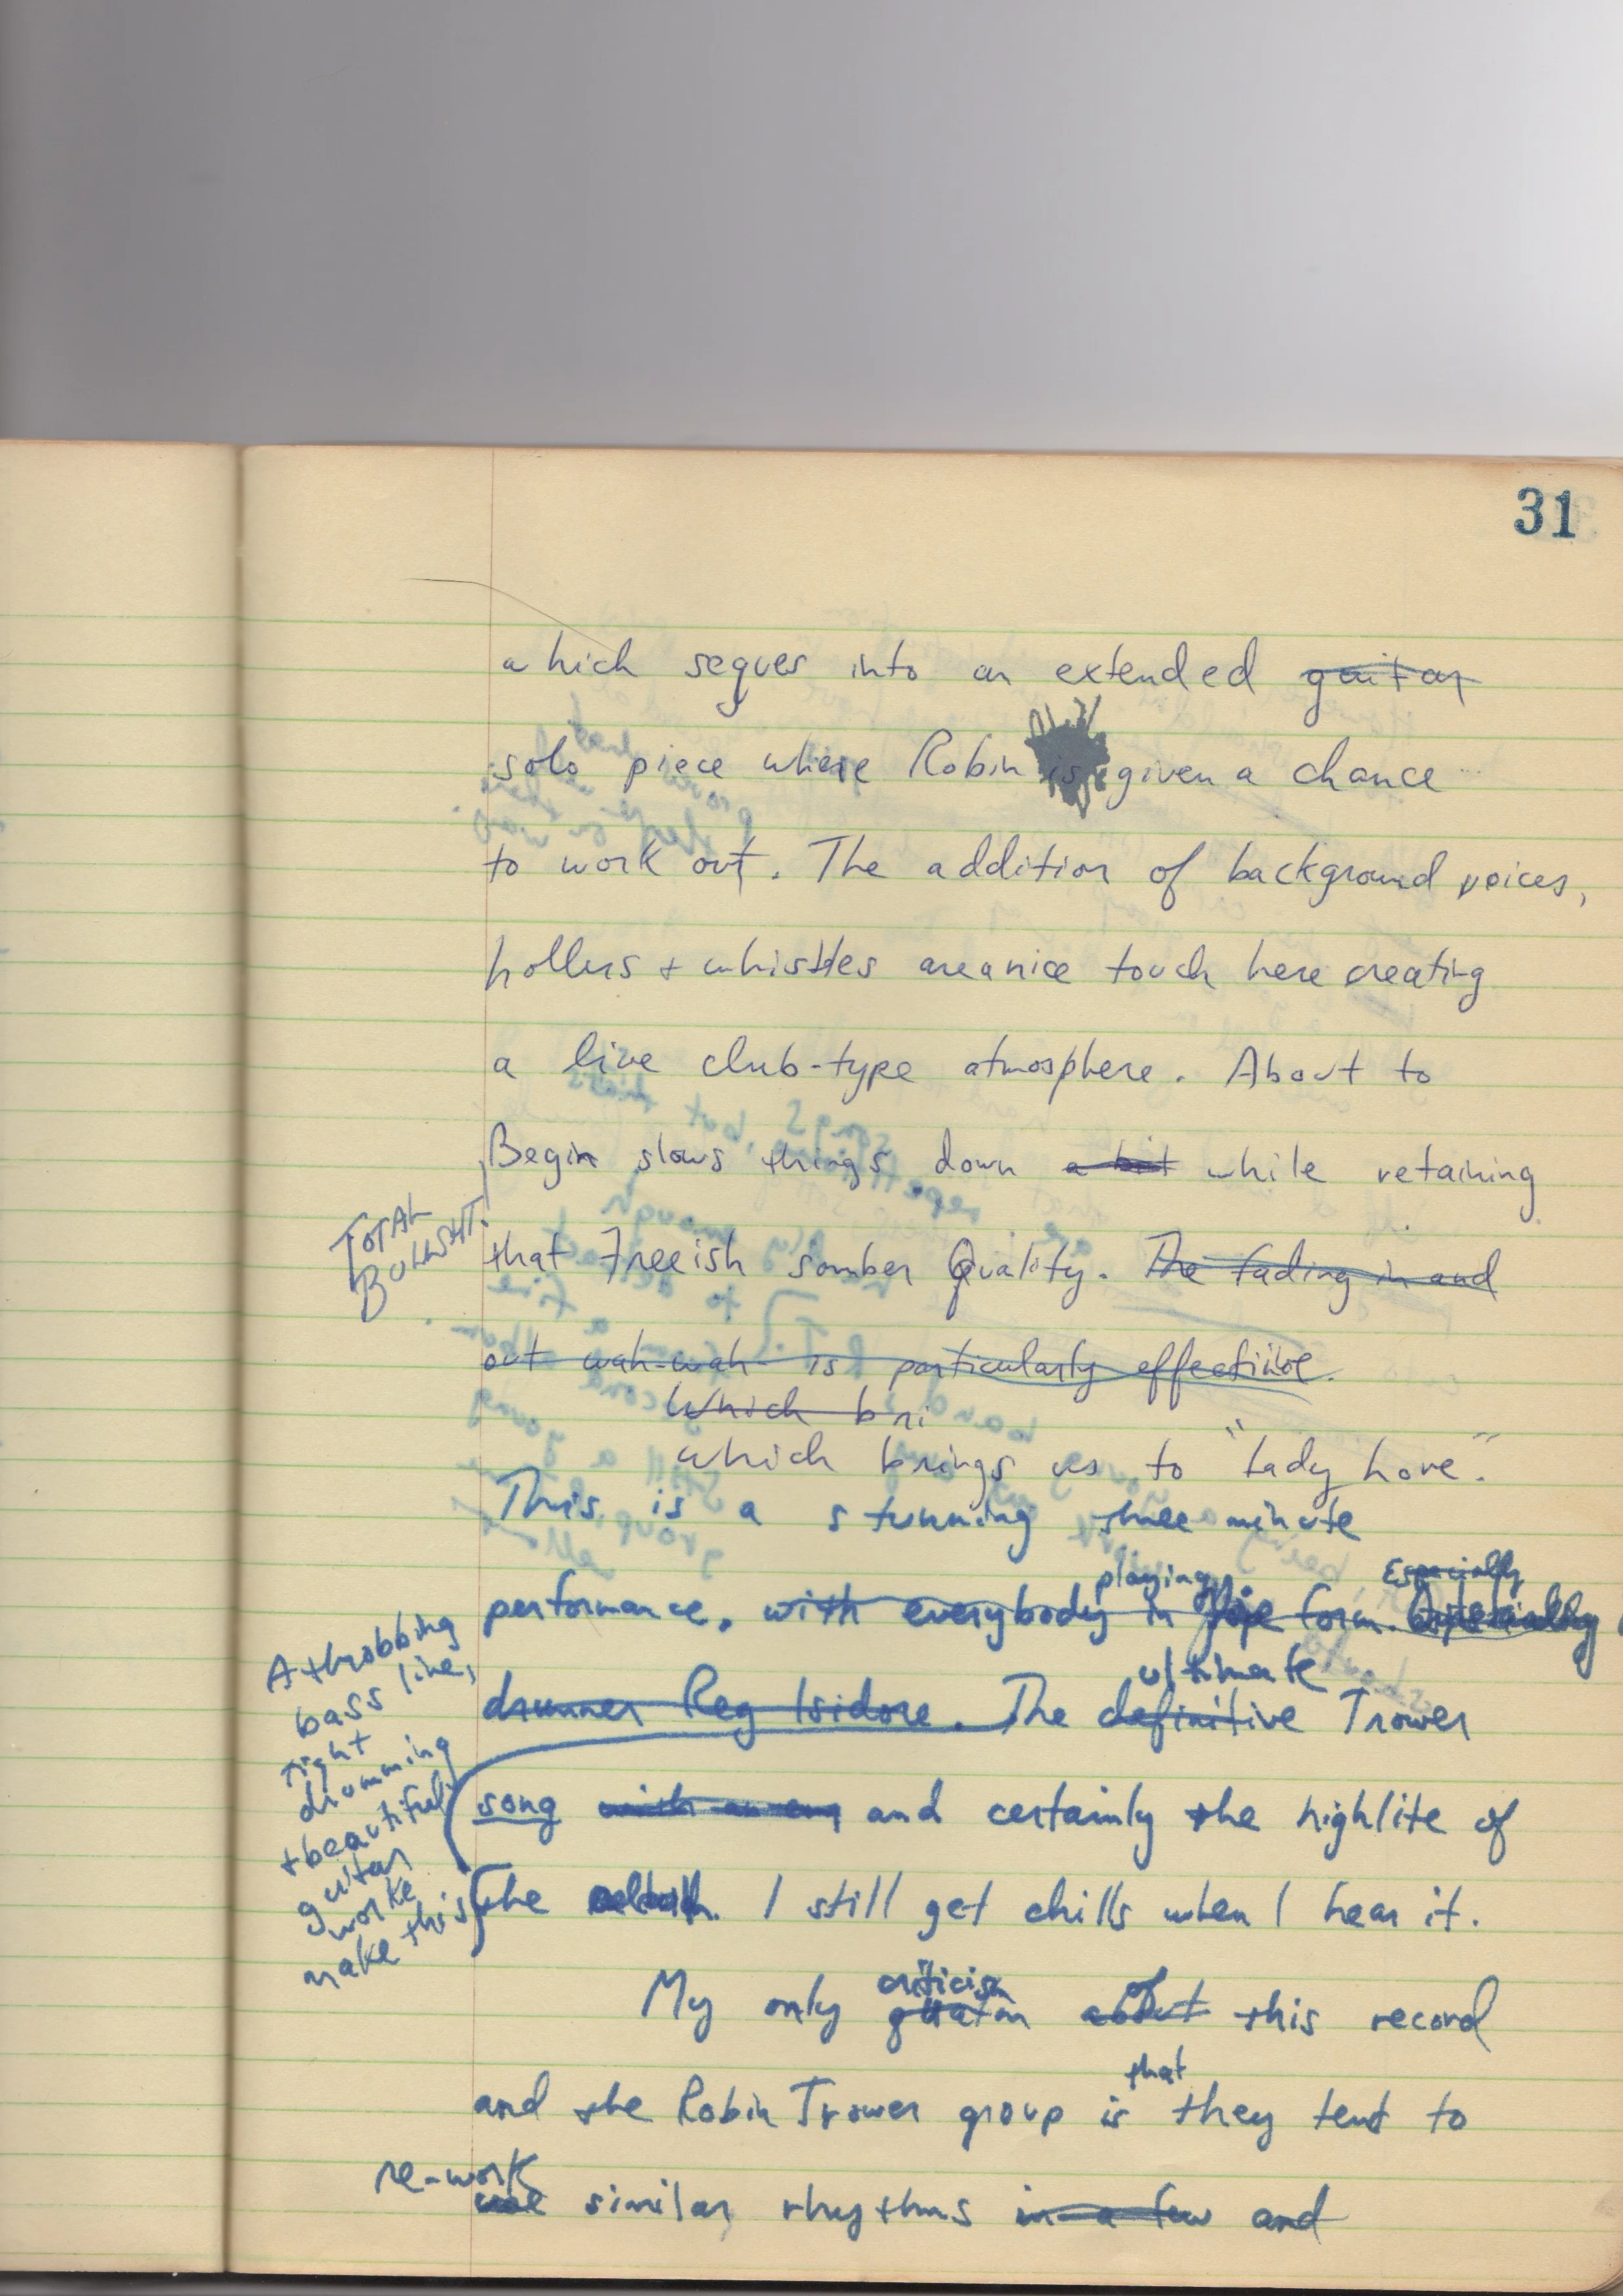 31
which segues into an extended guitar
solo piece where Robin is given a chance
to work out. The addition of background voices,
hollers + whistles are a nice touch here creating
a live club-type atmosphere. About to
Begin slows things down a bit while retaining
TOTAL
BULLSHIT.
that Freeish somber Quality. The fading in and
out wah-wah is particularly effective.
Which bri
which brings us to "Lady Love."
This is a stunning three minute
playing Especially
performance. with everybody in form.
ultimate
drummer Reg Isidore. The definitive Trower
song and certainly the highlite of
the I still get chills when I hear it.
A throbbing
bass line,
tight
drumming
+ beautiful
guitar
worke
make this
criticism of
My only about this record
that
and the Robin Trower group is they tend to
re-work
use similar rhythms in a few and